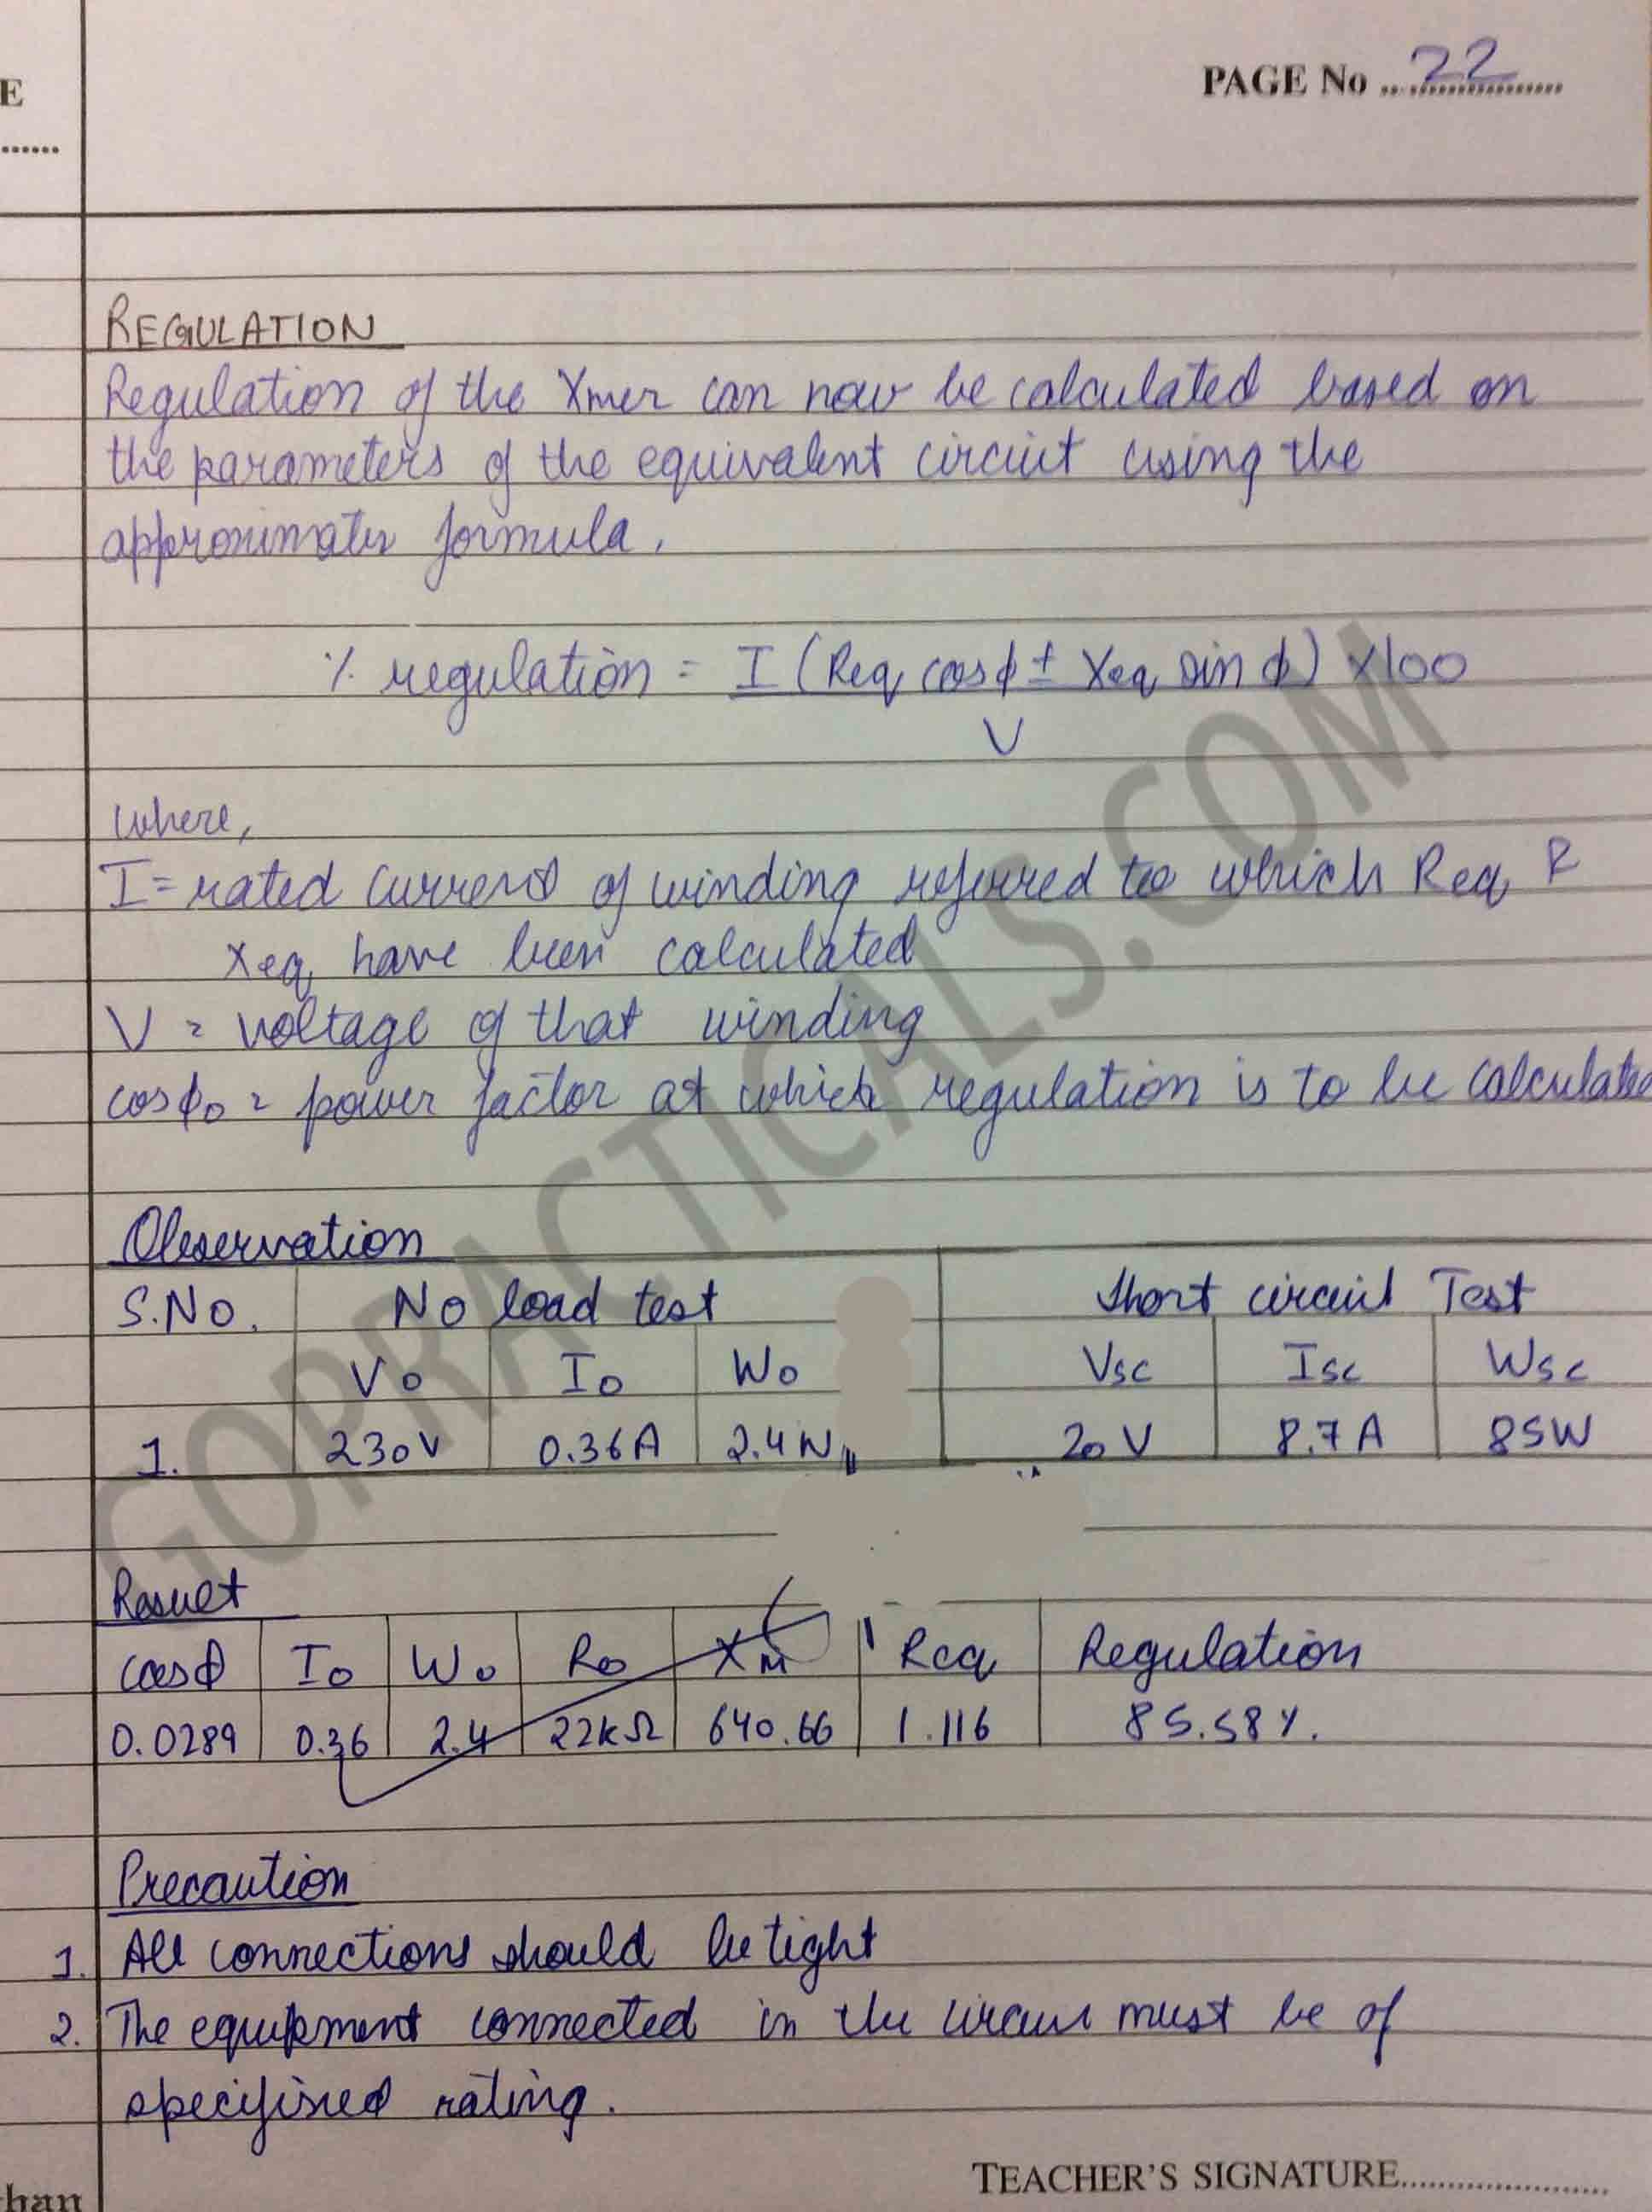 E
PAGE No ..22
......
REGULATION
Regulation of the Xmer can now be calculated based on
the parameters of the equivalent circuit using the
approximate formula.
% regulation = I (Req cosϕ ± Xeq sin ϕ) x100
V
where,
I = rated current of winding referred to which Req &
Xeq have been calculated
V = voltage of that winding
cosϕ₀ = power factor at which regulation is to be calculated
Observation
S.NO. No load test Short circuit Test
Vo Io Wo Vsc Isc Wsc
1. 230V 0.36A 2.4W 20 V 8.7 A 85W
Result
cosϕ Io Wo Ro Xm Req Regulation
0.0289 0.36 2.4 22kΩ 640.66 1.116 85.58%.
Precaution
1. All connections should be tight
2. The equipment connected in the circuit must be of
specified rating.
TEACHER'S SIGNATURE....................
han
GOPRACTICALS.COM